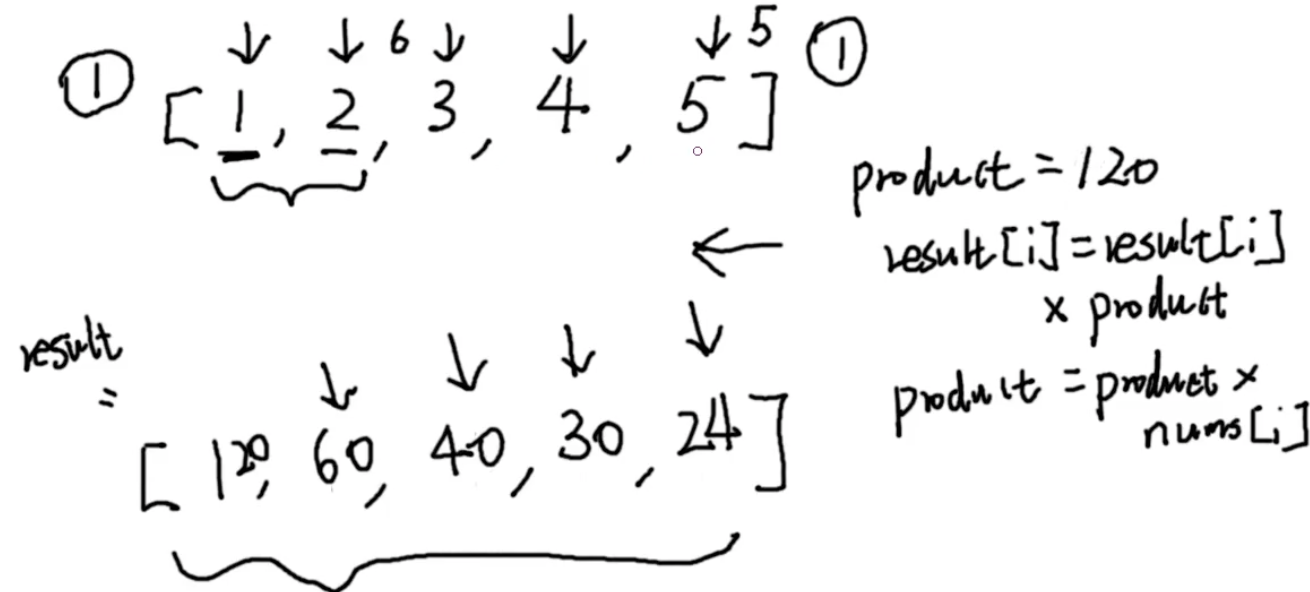 6 5
① [ 1, 2, 3, 4, 5 ] ①
product = 120
result[i] = result[i]
x product
result
=
product = product x
nums[i]
[ 120, 60, 40, 30, 24 ]